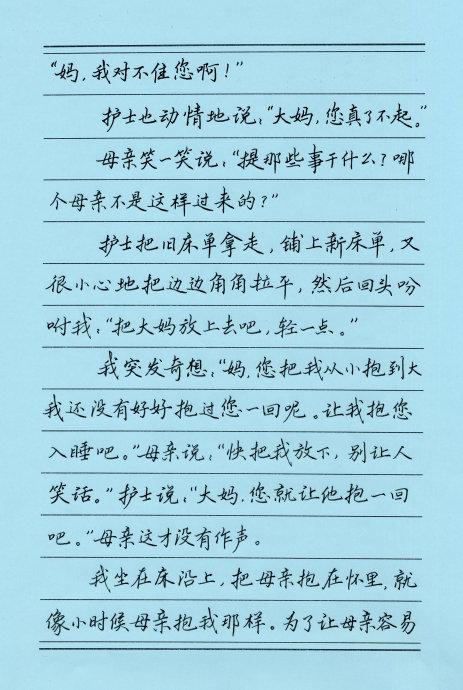 “妈，我对不住您啊！”
护士也动情地说：“大妈，您真了不起。”
母亲笑一笑说：“提那些事干什么？哪
个母亲不是这样过来的？”
护士把旧床单拿走，铺上新床单，又
很小心地把边边角角拉平，然后回头吩
咐我：“把大妈放上去吧，轻一点。”
我突发奇想：“妈，您把我从小抱到大
我还没有好好抱过您一回呢。让我抱您
入睡吧。”母亲说：“快把我放下，别让人
笑话。”护士说：“大妈，您就让他抱一回
吧。”母亲这才没有作声。
我坐在床沿上，把母亲抱在怀里，就
像小时候母亲抱我那样。为了让母亲容易